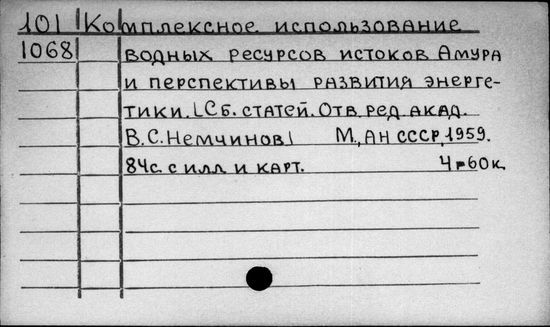 101 Комплексное использование
1068 водных ресурсов истоков Амура
и перспективы развития энерге-
тики. [Сб. статей. Отв. ред. акад.
В.С. Немчинов] М., АН СССР, 1959.
84с. с илл и карт. 4р60к.